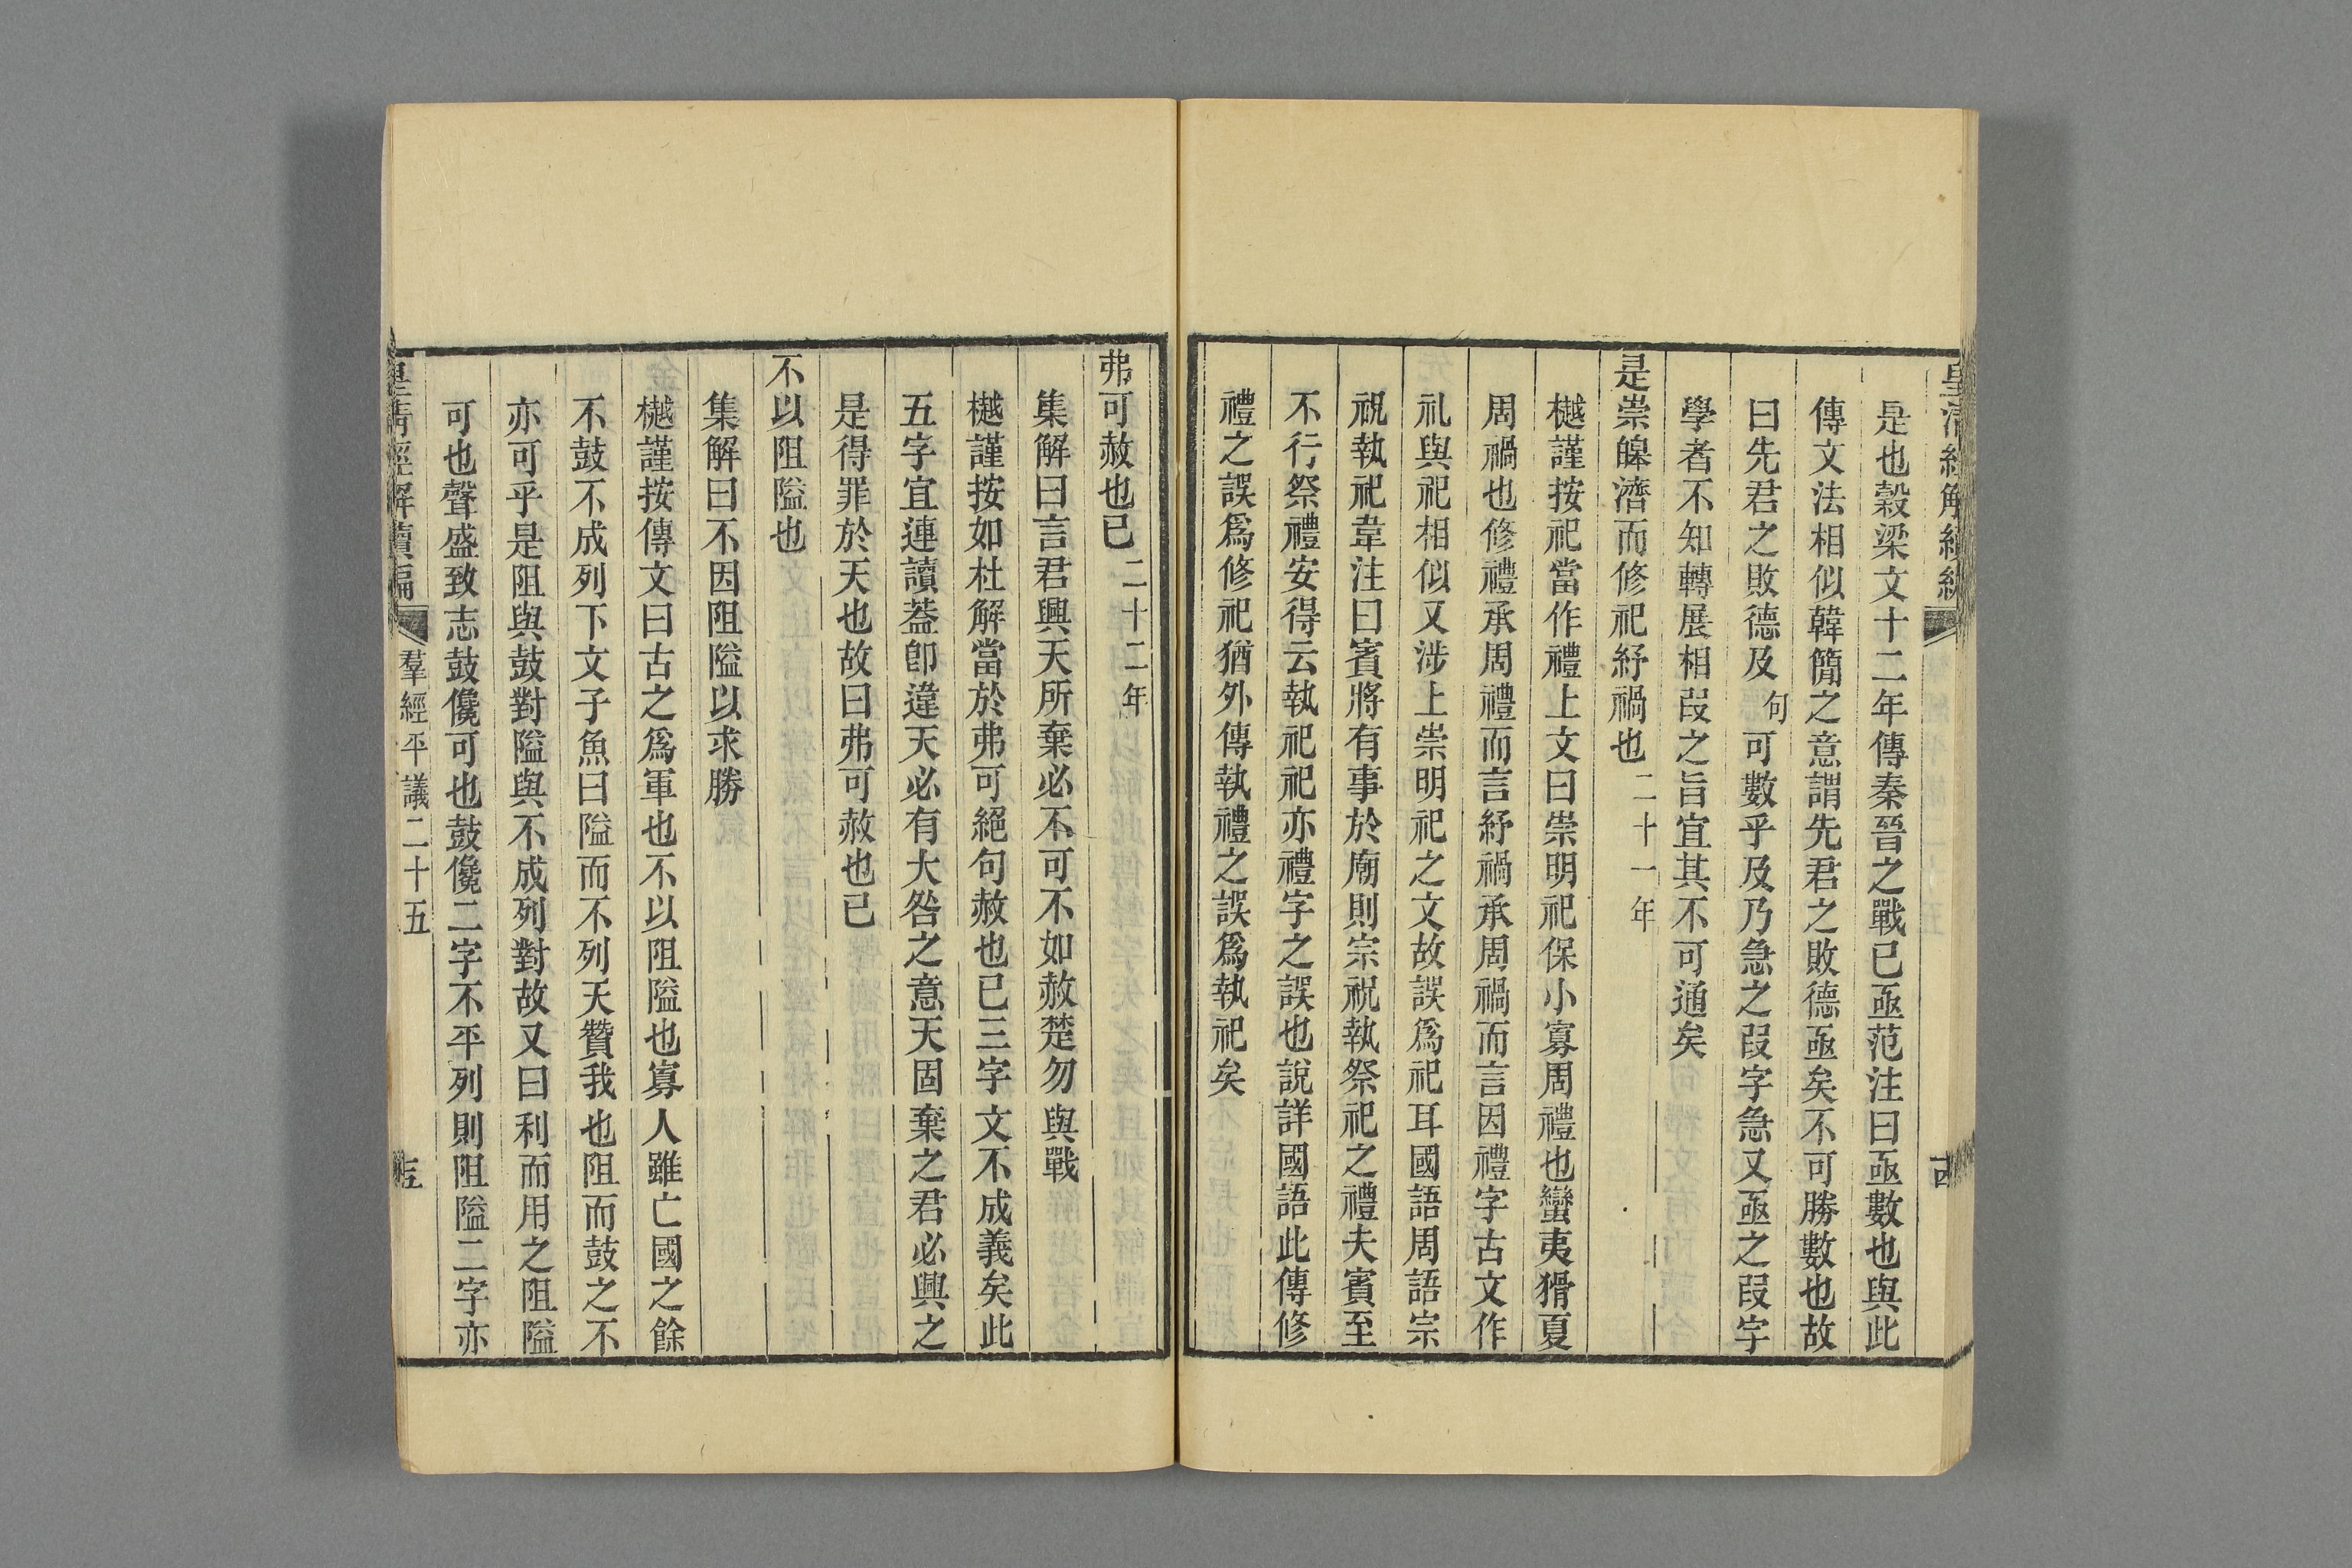 皇清經解續編
是也穀梁文十二年傳秦晉之戰已亟范注曰亟數也與此
傳文法相似韓簡之意謂先君之敗德亟矣不可勝數也故
曰先君之敗德及句可數乎及乃急之叚字急又亟之叚字
學者不知轉展相叚之旨宜其不可通矣
是崇皞濟而修祀紓禍也二十一年
樾謹按祀當作禮上文曰崇明祀保小寡周禮也蠻夷猾夏
周禍也修禮承周禮而言紓禍承周禍而言因禮字古文作
礼與祀相似又涉上崇明祀之文故誤爲祀耳國語周語宗
祝執祀韋注曰賓將有事於廟則宗祝執祭祀之禮夫賓至
不行祭禮安得云執祀祀亦禮字之誤也說詳國語此傳修
禮之誤爲修祀猶外傳執禮之誤爲執祀矣
弗可赦也已二十二年
集解曰言君興天所棄必不可不如赦楚勿與戰
樾謹按如杜解當於弗可絕句赦也已三字文不成義矣此
五字宜連讀葢卽違天必有大咎之意天固棄之君必興之
是得罪於天也故曰弗可赦也已
不以阻隘也
集解曰不因阻隘以求勝
樾謹按傳文曰古之爲軍也不以阻隘也寡人雖亡國之餘
不鼓不成列下文子魚曰隘而不列天贊我也阻而鼓之不
亦可乎是阻與鼓對隘與不成列對故又曰利而用之阻隘
可也聲盛致志鼓儳可也鼓儳二字不平列則阻隘二字亦
皇清經解續編 羣經平議二十五